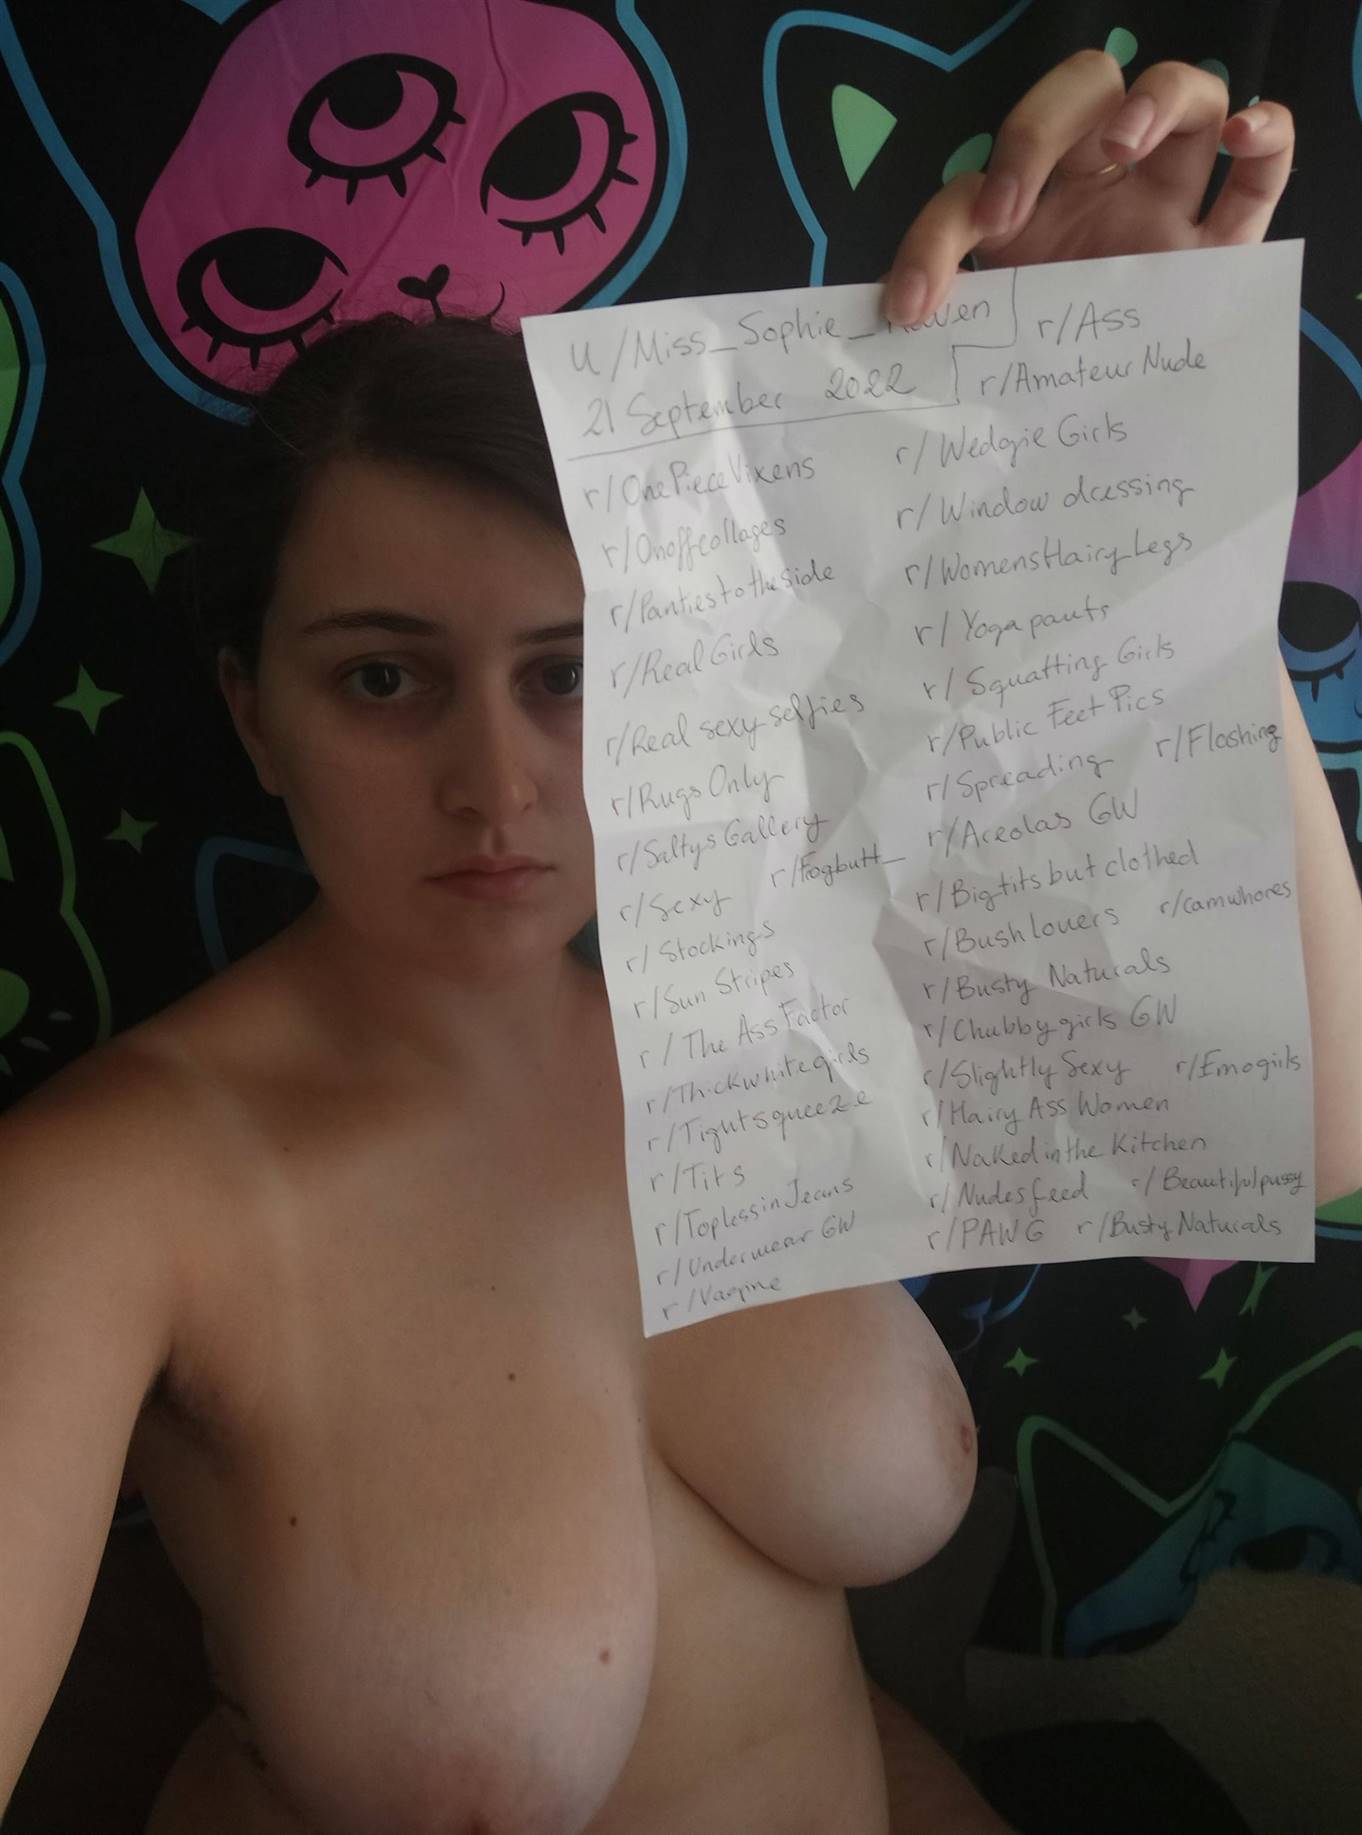 u/Miss_Sophie_
21 September 2022
r/Ass
r/Amateur Nude
r/OnePieceVixens
r/Onoffcollages
r/Pantiestotheside
r/RealGirls
r/Real sexy selfies
r/RugsOnly
r/Saltys Gallery
r/Sexy
r/Fogbutt_
r/Stockings
r/Sun Stripes
r/The Ass Factor
r/Thickwhitegirls
r/Tightsqueeze
r/Tits
r/ToplessinJeans
r/Underwear GW
r/Wedgie Girls
r/Window dressing
r/WomensHairyLegs
r/Yoga pants
r/Squatting Girls
r/Public Feet Pics
r/Spreading r/Flashing
r/Areolas GW
r/Bigtits but clothed
r/Bushlovers r/camwhores
r/Busty Naturals
r/Chubby girls GW
r/Slightly Sexy r/Emogirls
r/Hairy Ass Women
r/Naked in the Kitchen
r/Nudes feed r/Beautifulpussy
r/PAWG r/Busty Naturals